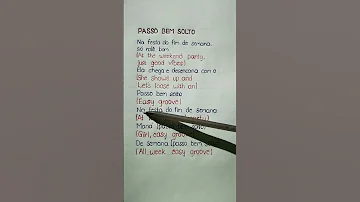 PASSO BEM SOLTO
Na festa do fim de semana,
só role bom
(At the weekend party,
just good vibes)
Ela chega e desencana com o
(She shows up and
Let's loose with an)
Passo bem solto
(Easy groove)
Na festa do fim de semana
(At
Mana (passo
(Girl, easy groove
De semana (passo bem so
(All week, easy groove)